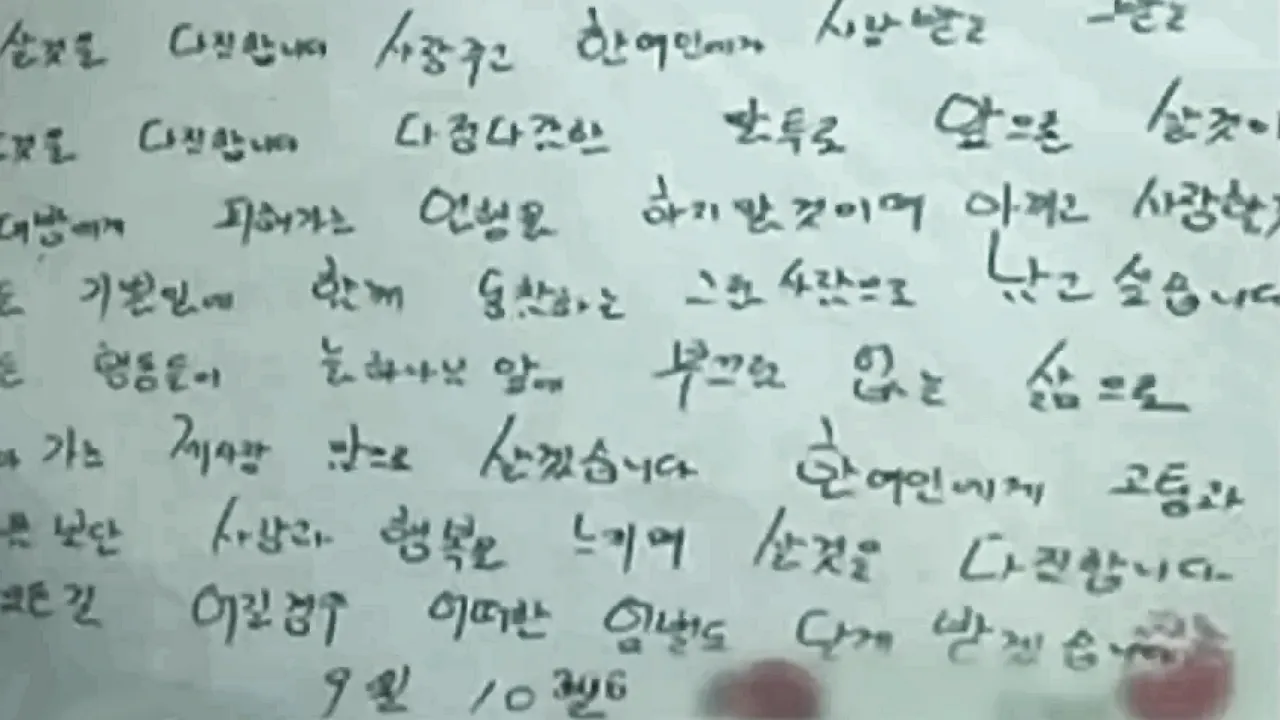 살것을 다짐합니다 사랑주고 한여인에게 사랑받고
것을 다짐합니다 다정다감한 말투로 앞으론 살것이
대방에게 피해가는 언행을 하지말것이며 아끼고 사랑한
기쁜일에 함께 동참하는 그런 사람으로 남고 싶습니다
행동들이 늘하나님 앞에 부끄럼 없는 삶으로
가는 제사랑 만으로 살겠습니다 한여인에게 고통과
보단 사랑과 행복을 느끼며 살것을 다짐합니다
어길경우 어떠한 엄벌도 단게 받겠습니다
9월 10